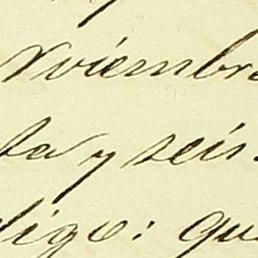 viembre
ta y seis
digo: que